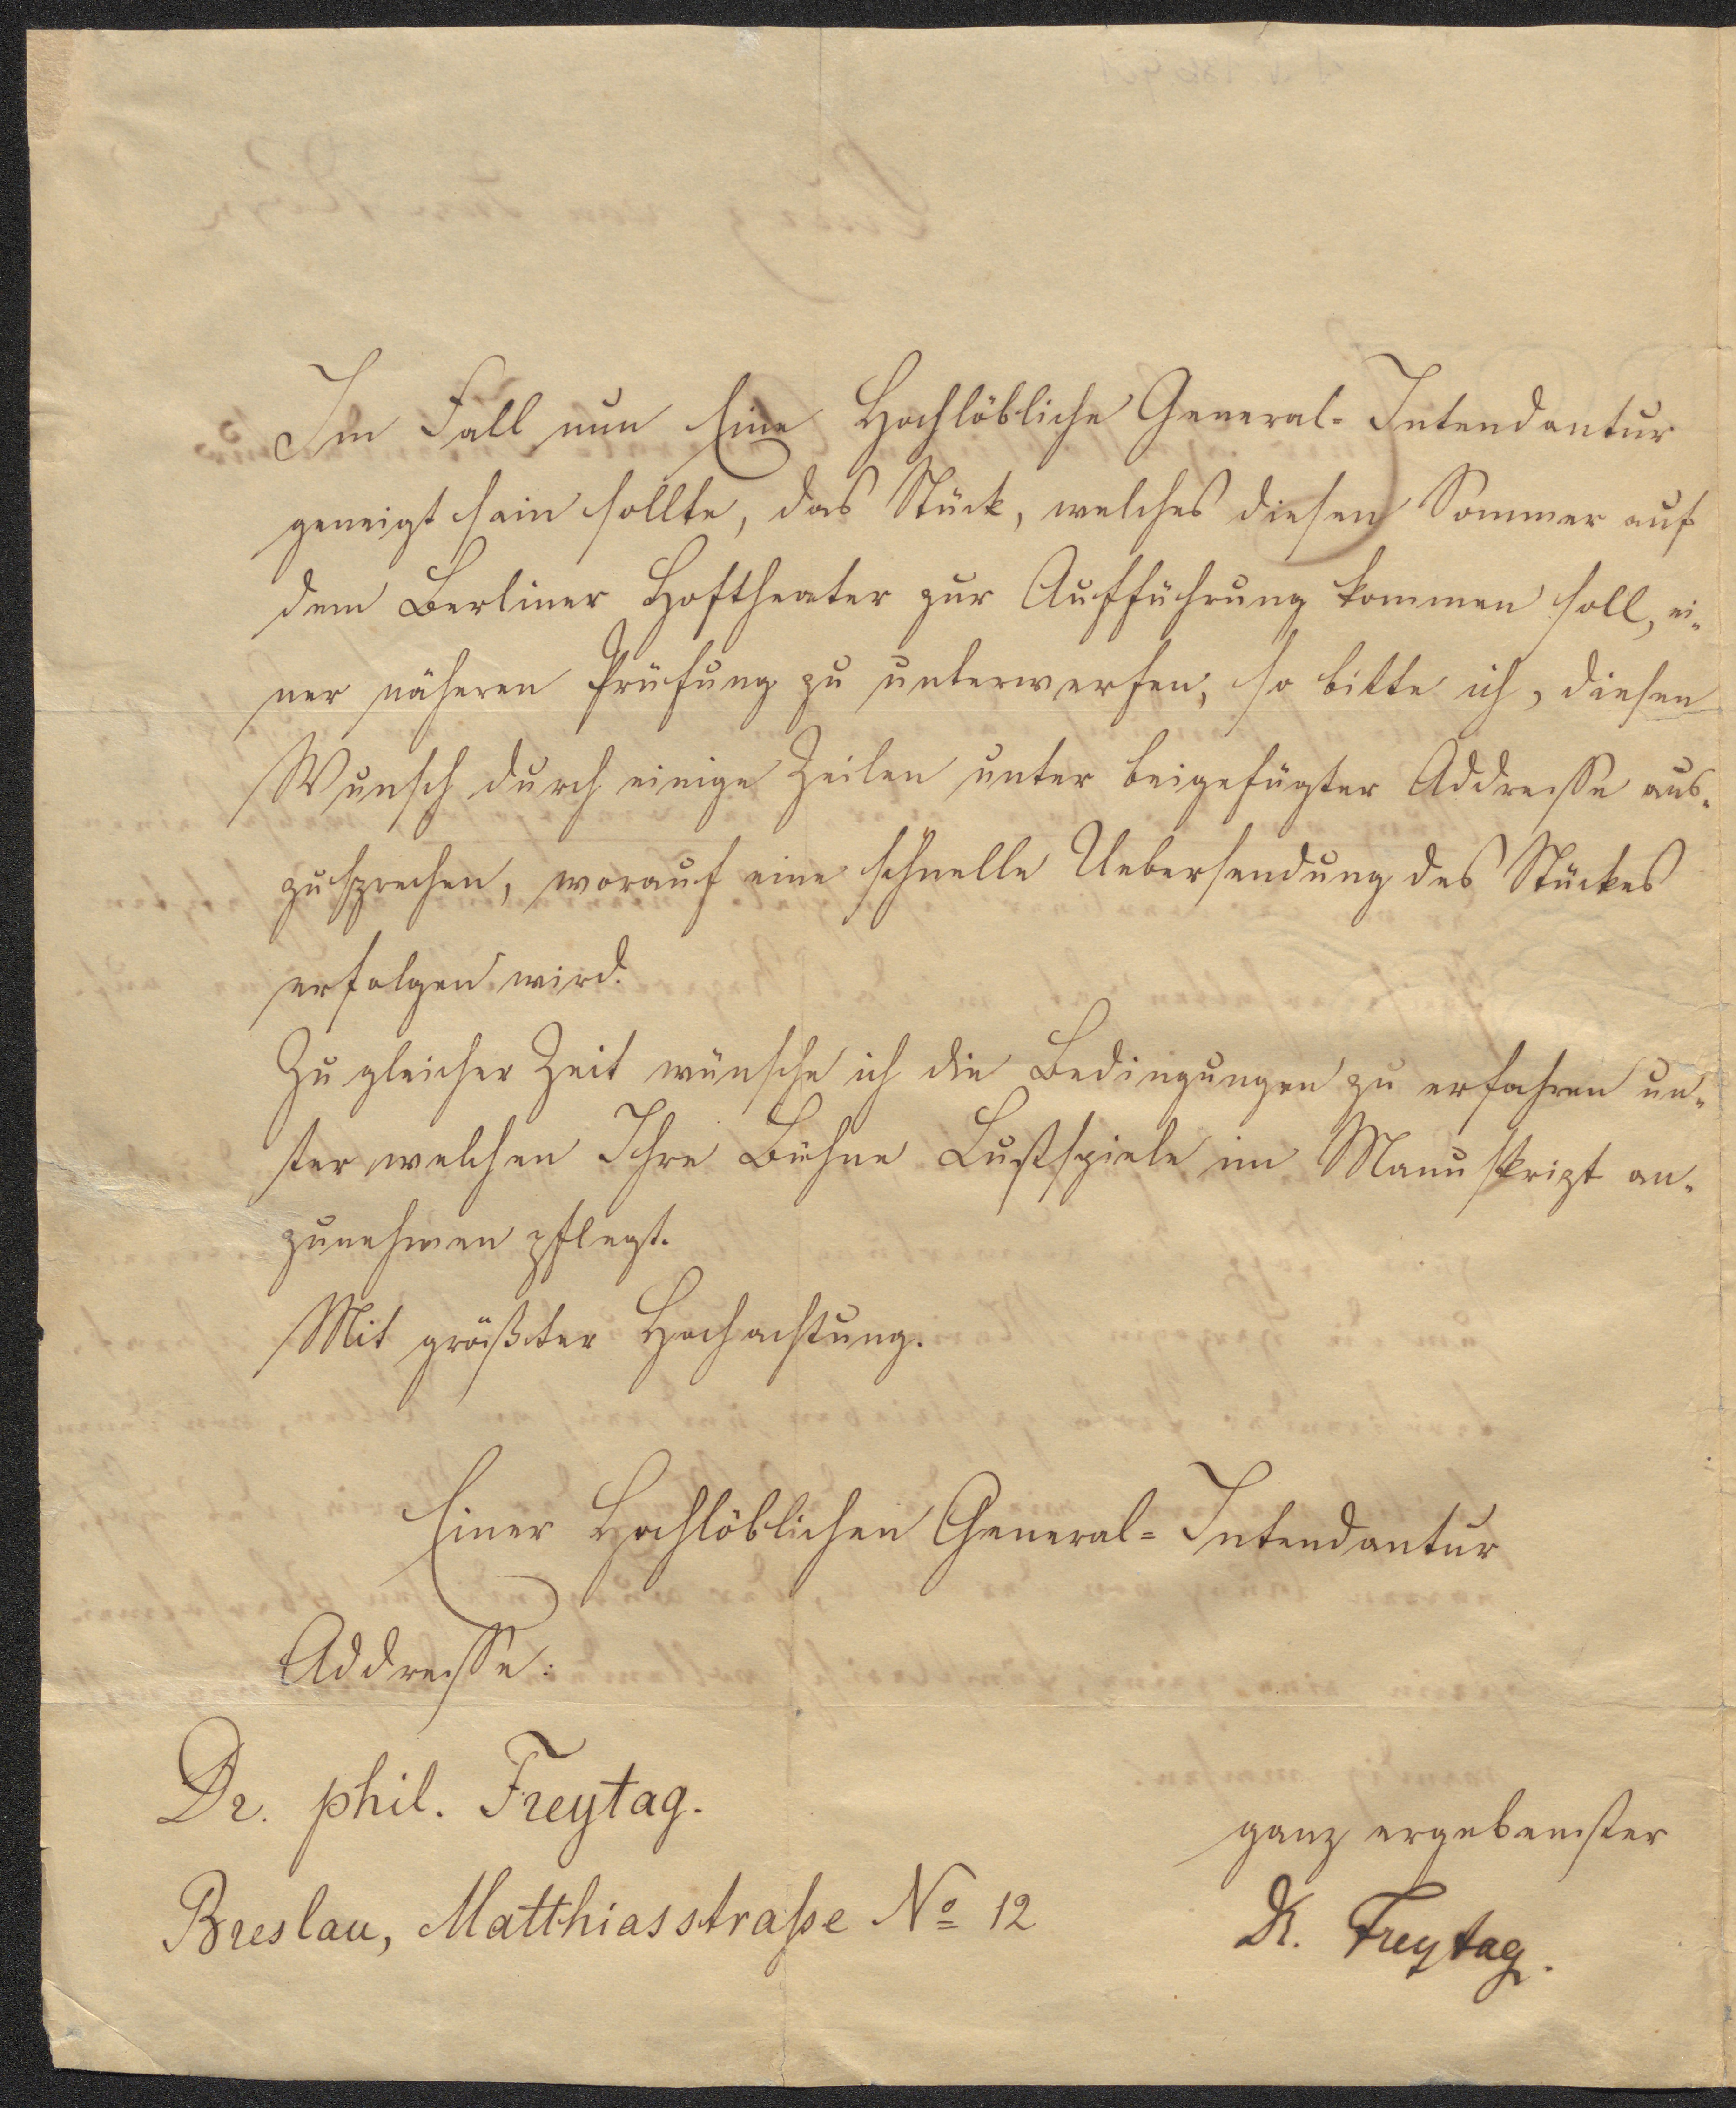 Im Fall nun Eine Hochlöbliche General-Intendantur
geneigt sein sollte, das Stück, welches diesen Sommer auf
dem Berliner Hoftheater zur Aufführung kommen soll, ei-
ner näheren Prüfung zu unterwerfen, so bitte ich, diesen
Wunsch durch einige Zeilen unter beigefügter Addresse aus-
zusprechen, worauf eine schnelle Uebersendung des Stückes
erfolgen wird.
Zu gleicher Zeit wünsche ich die Bedingungen zu erfahren un-
ter welchen Ihre Bühne Lustspiele im Manuskript an-
zunehmen pflegt.
Mit größter Hochachtung.
Einer Hochlöblichen General-Intendantur
Addresse:
Dr. phil. Freytag.
ganz ergebenster
Breslau, Matthiasstraße No 12
Dr. Freytag.